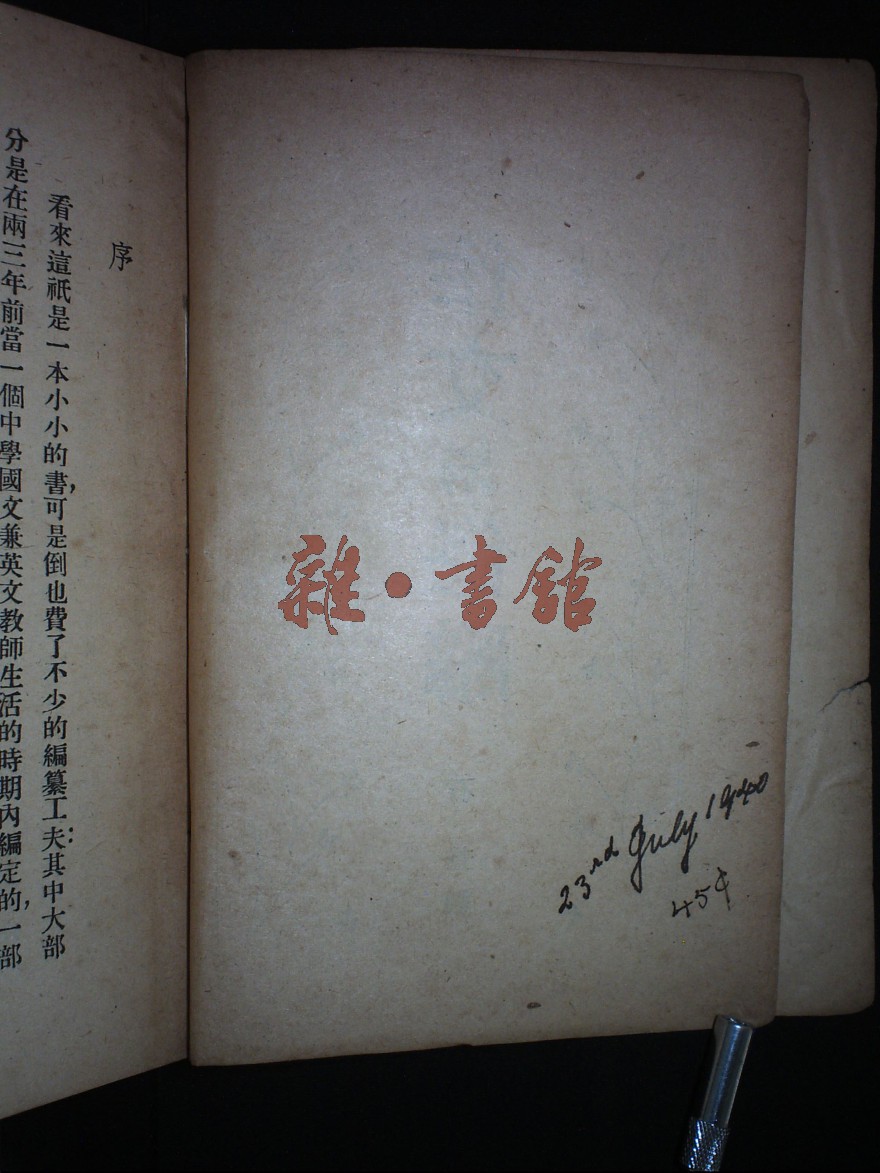 序
看來這祇是一本小小的書，可是倒也費了不少的編纂工夫：其中大部
分是在兩三年前當一個中學國文兼英文教師生活的時期內編定的，一部
雜·書館
23rd July 1940
45¢